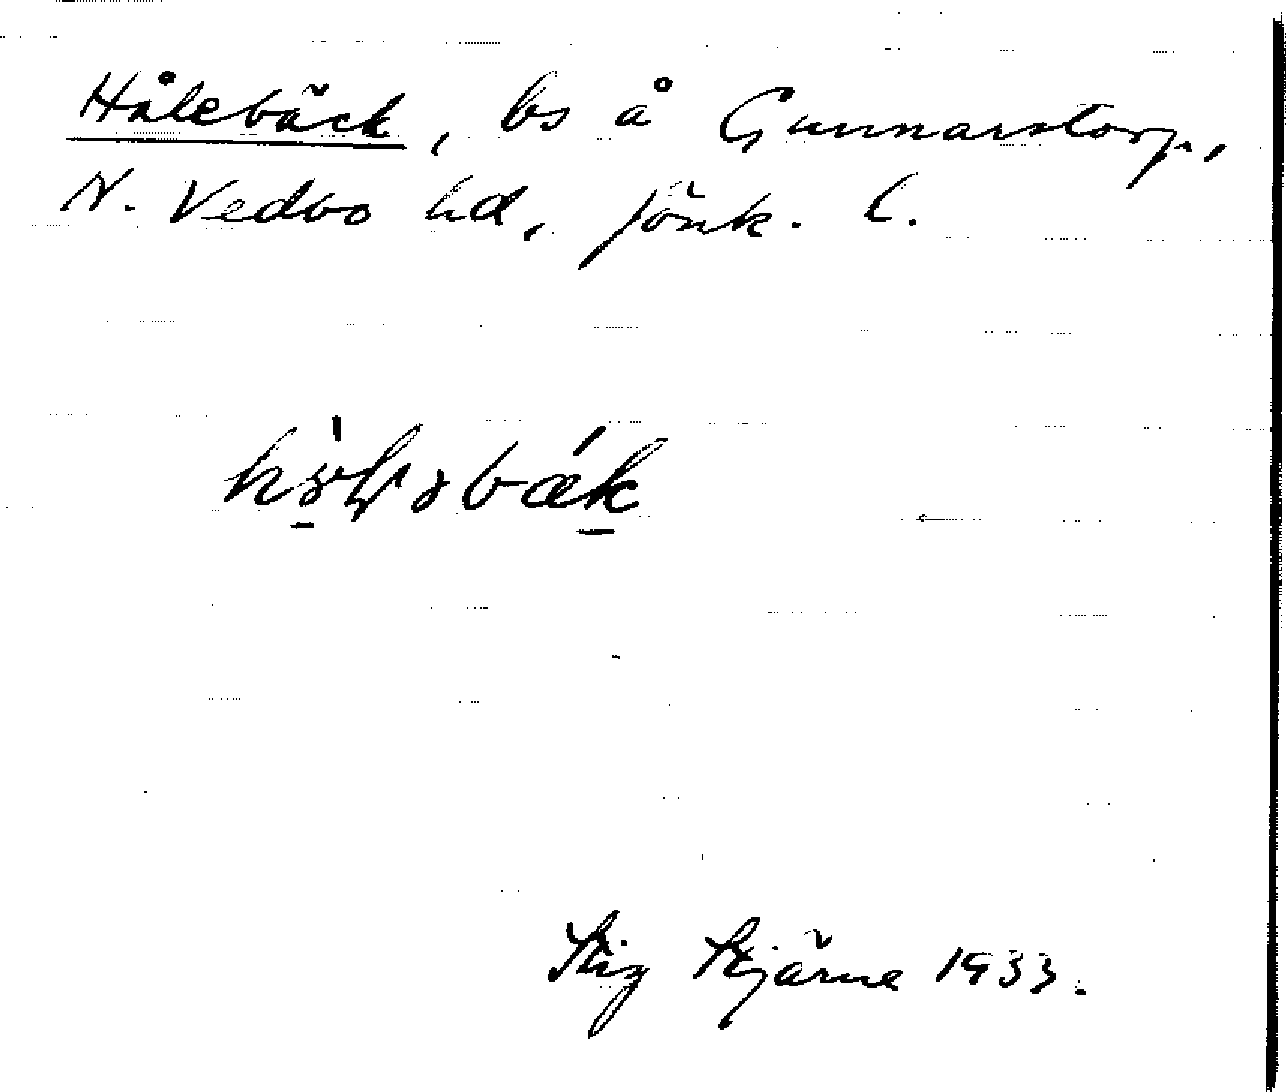 Hålebäck, bs å Gunnarstorp,
N. Vedbo hd, Jönk. l.
Stig Stjärne 1933.